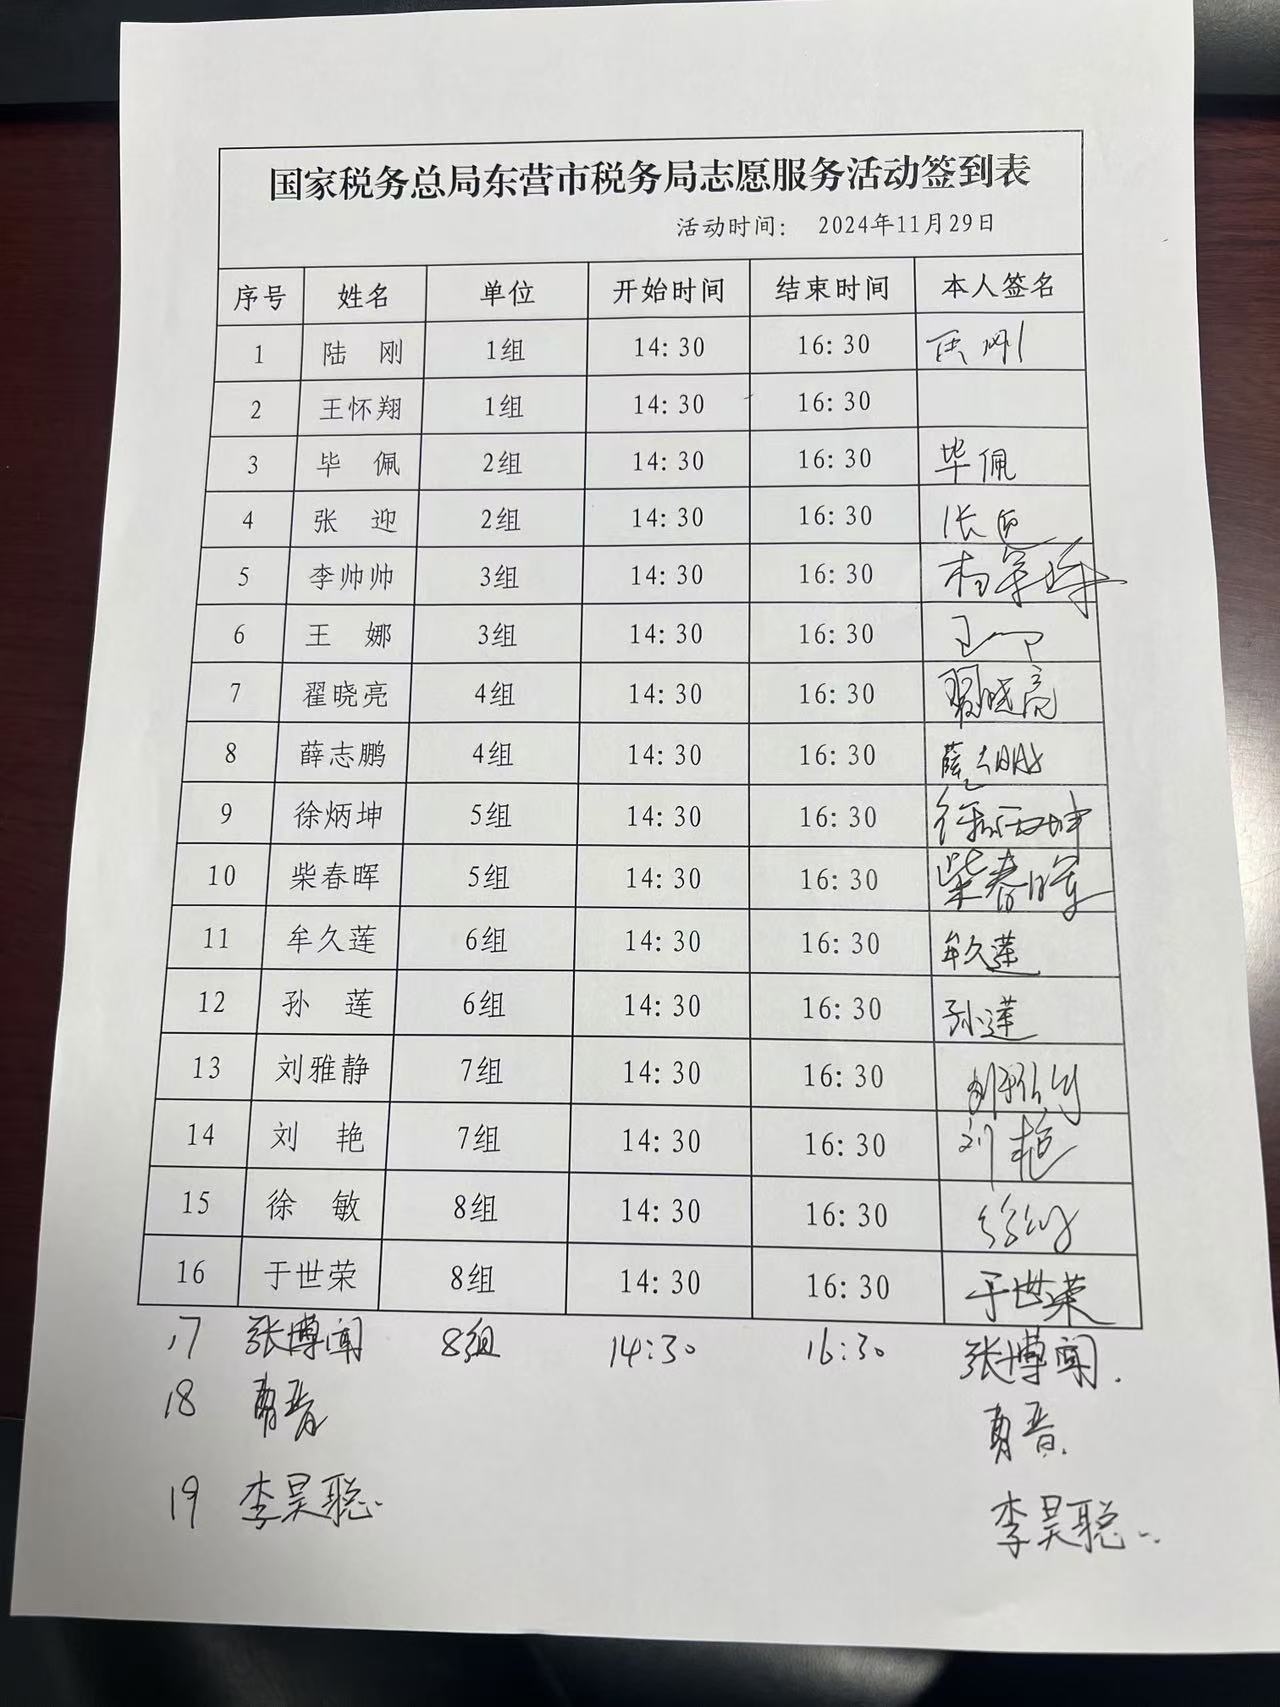 国家税务总局东营市税务局志愿服务活动签到表
活动时间： 2024年11月29日
序号 姓名 单位 开始时间 结束时间 本人签名
1 陆 刚 1组 14:30 16:30 陆刚
2 王怀翔 1组 14:30 16:30
3 毕 佩 2组 14:30 16:30 毕佩
4 张 迎 2组 14:30 16:30 张迎
5 李帅帅 3组 14:30 16:30
6 王 娜 3组 14:30 16:30 王
7 翟晓亮 4组 14:30 16:30 翟晓亮
8 薛志鹏 4组 14:30 16:30 薛志鹏
9 徐炳坤 5组 14:30 16:30 徐炳坤
10 柴春晖 5组 14:30 16:30 柴春晖
11 牟久莲 6组 14:30 16:30 牟久莲
12 孙 莲 6组 14:30 16:30 孙莲
13 刘雅静 7组 14:30 16:30 刘雅静
14 刘 艳 7组 14:30 16:30 刘艳
15 徐 敏 8组 14:30 16:30 徐敏
16 于世荣 8组 14:30 16:30 于世荣
17 张博闻 8组 14:30 16:30 张博闻.
18 晋 晋.
19 李昊聪.. 李昊聪..